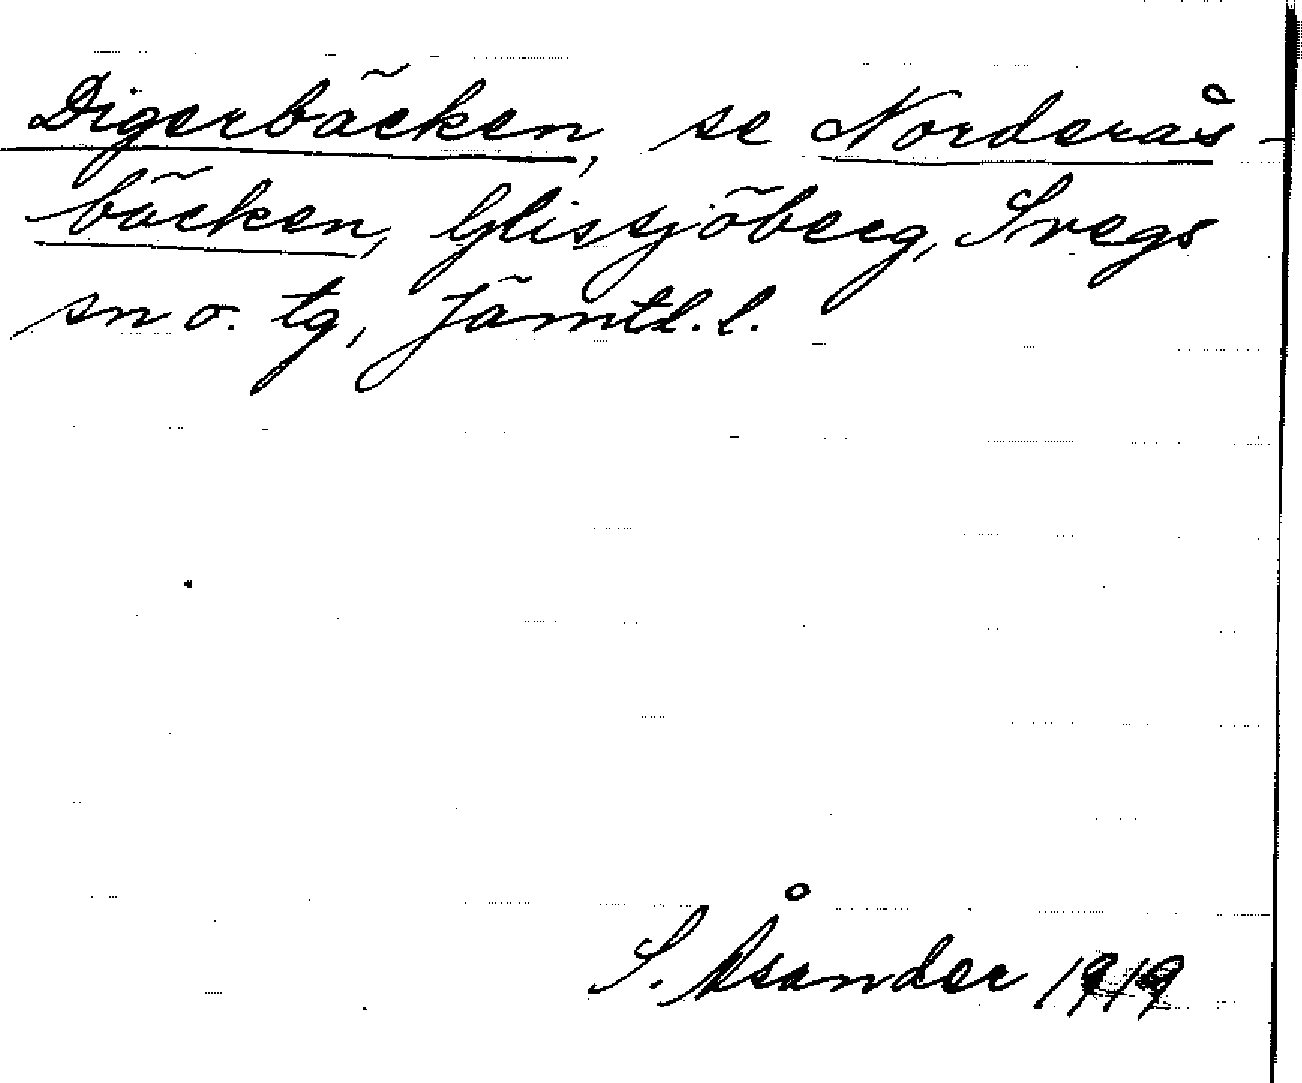 Digerbäcken, se Norderås-
bäcken, Glissjöberg, Svegs
sn o. tg, Jämtl. l.
S. Åsander 1919